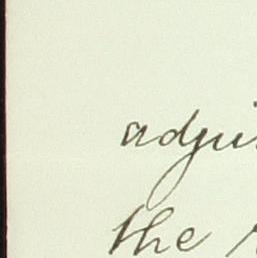 adju
the